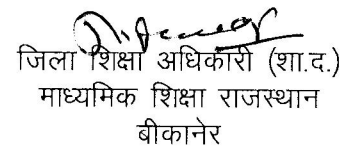 जिला शिक्षा अधिकारी (शा.द.)
माध्यमिक शिक्षा राजस्थान
बीकानेर